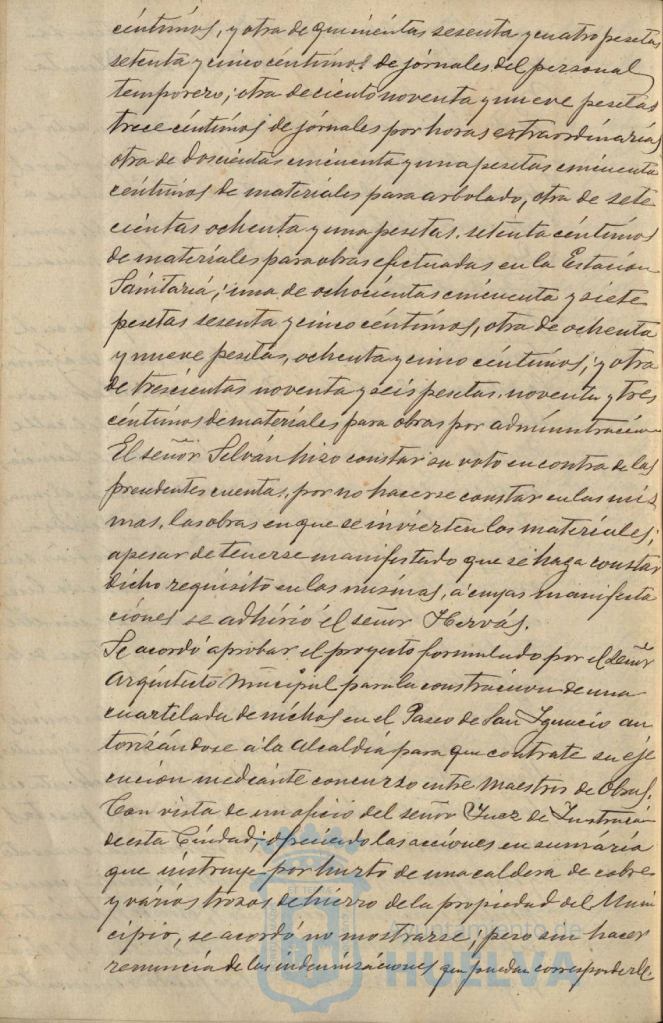 céntimos, y otra de quinientas sesenta y cuatro pesetas
setenta y cinco céntimos de jornales del personal
temporero; otra de ciento noventa y nueve pesetas
trece céntimos de jornales por horas extraordinarias
otra de doscientas cincuenta y una pesetas cincuenta
céntimos de materiales para arbolado, otra de sete
cientas ochenta y una pesetas, setenta céntimos
de materiales para obras efectuadas en la Estación
Sanitaria; una de ochocientas cincuenta y siete
pesetas sesenta y cinco céntimos, otra de ochenta
y nueve pesetas, ochenta y cinco céntimos; y otra
de trescientas noventa y seis pesetas, noventa y tres
céntimos de materiales para obras por administración
El señor Selván hizo constar su voto en contra de las
precedentes cuentas, por no hacerse constar en las mis
mas, las obras en que se invierten los materiales;
apesar de tenerse manifestado que se haga constar
dicho requisito en las mismas, á cuyas manifesta
ciones se adhirió el señor Hervás.
Se acordó aprobar el proyecto formulado por el señor
Arquitecto Municipal para la construccion de una
cuartelada de nichos en el Paseo de San Ignacio au
torizándose á la Alcaldía para que contrate su eje
cución mediante concurso entre Maestros de Obras.
Con vista de un oficio del señor Juez de Instrucción
de esta Ciudad, ofreciendo las acciones en sumaria
que instruye por hurto de una caldera de cobre
y varios trozos de hierro de la propiedad del Muni
cipio, se acordó no mostrarse; pero sin hacer
renuncia de las indemnizaciones que puedan corresponderle.
Ayuntamiento de
HUELVA